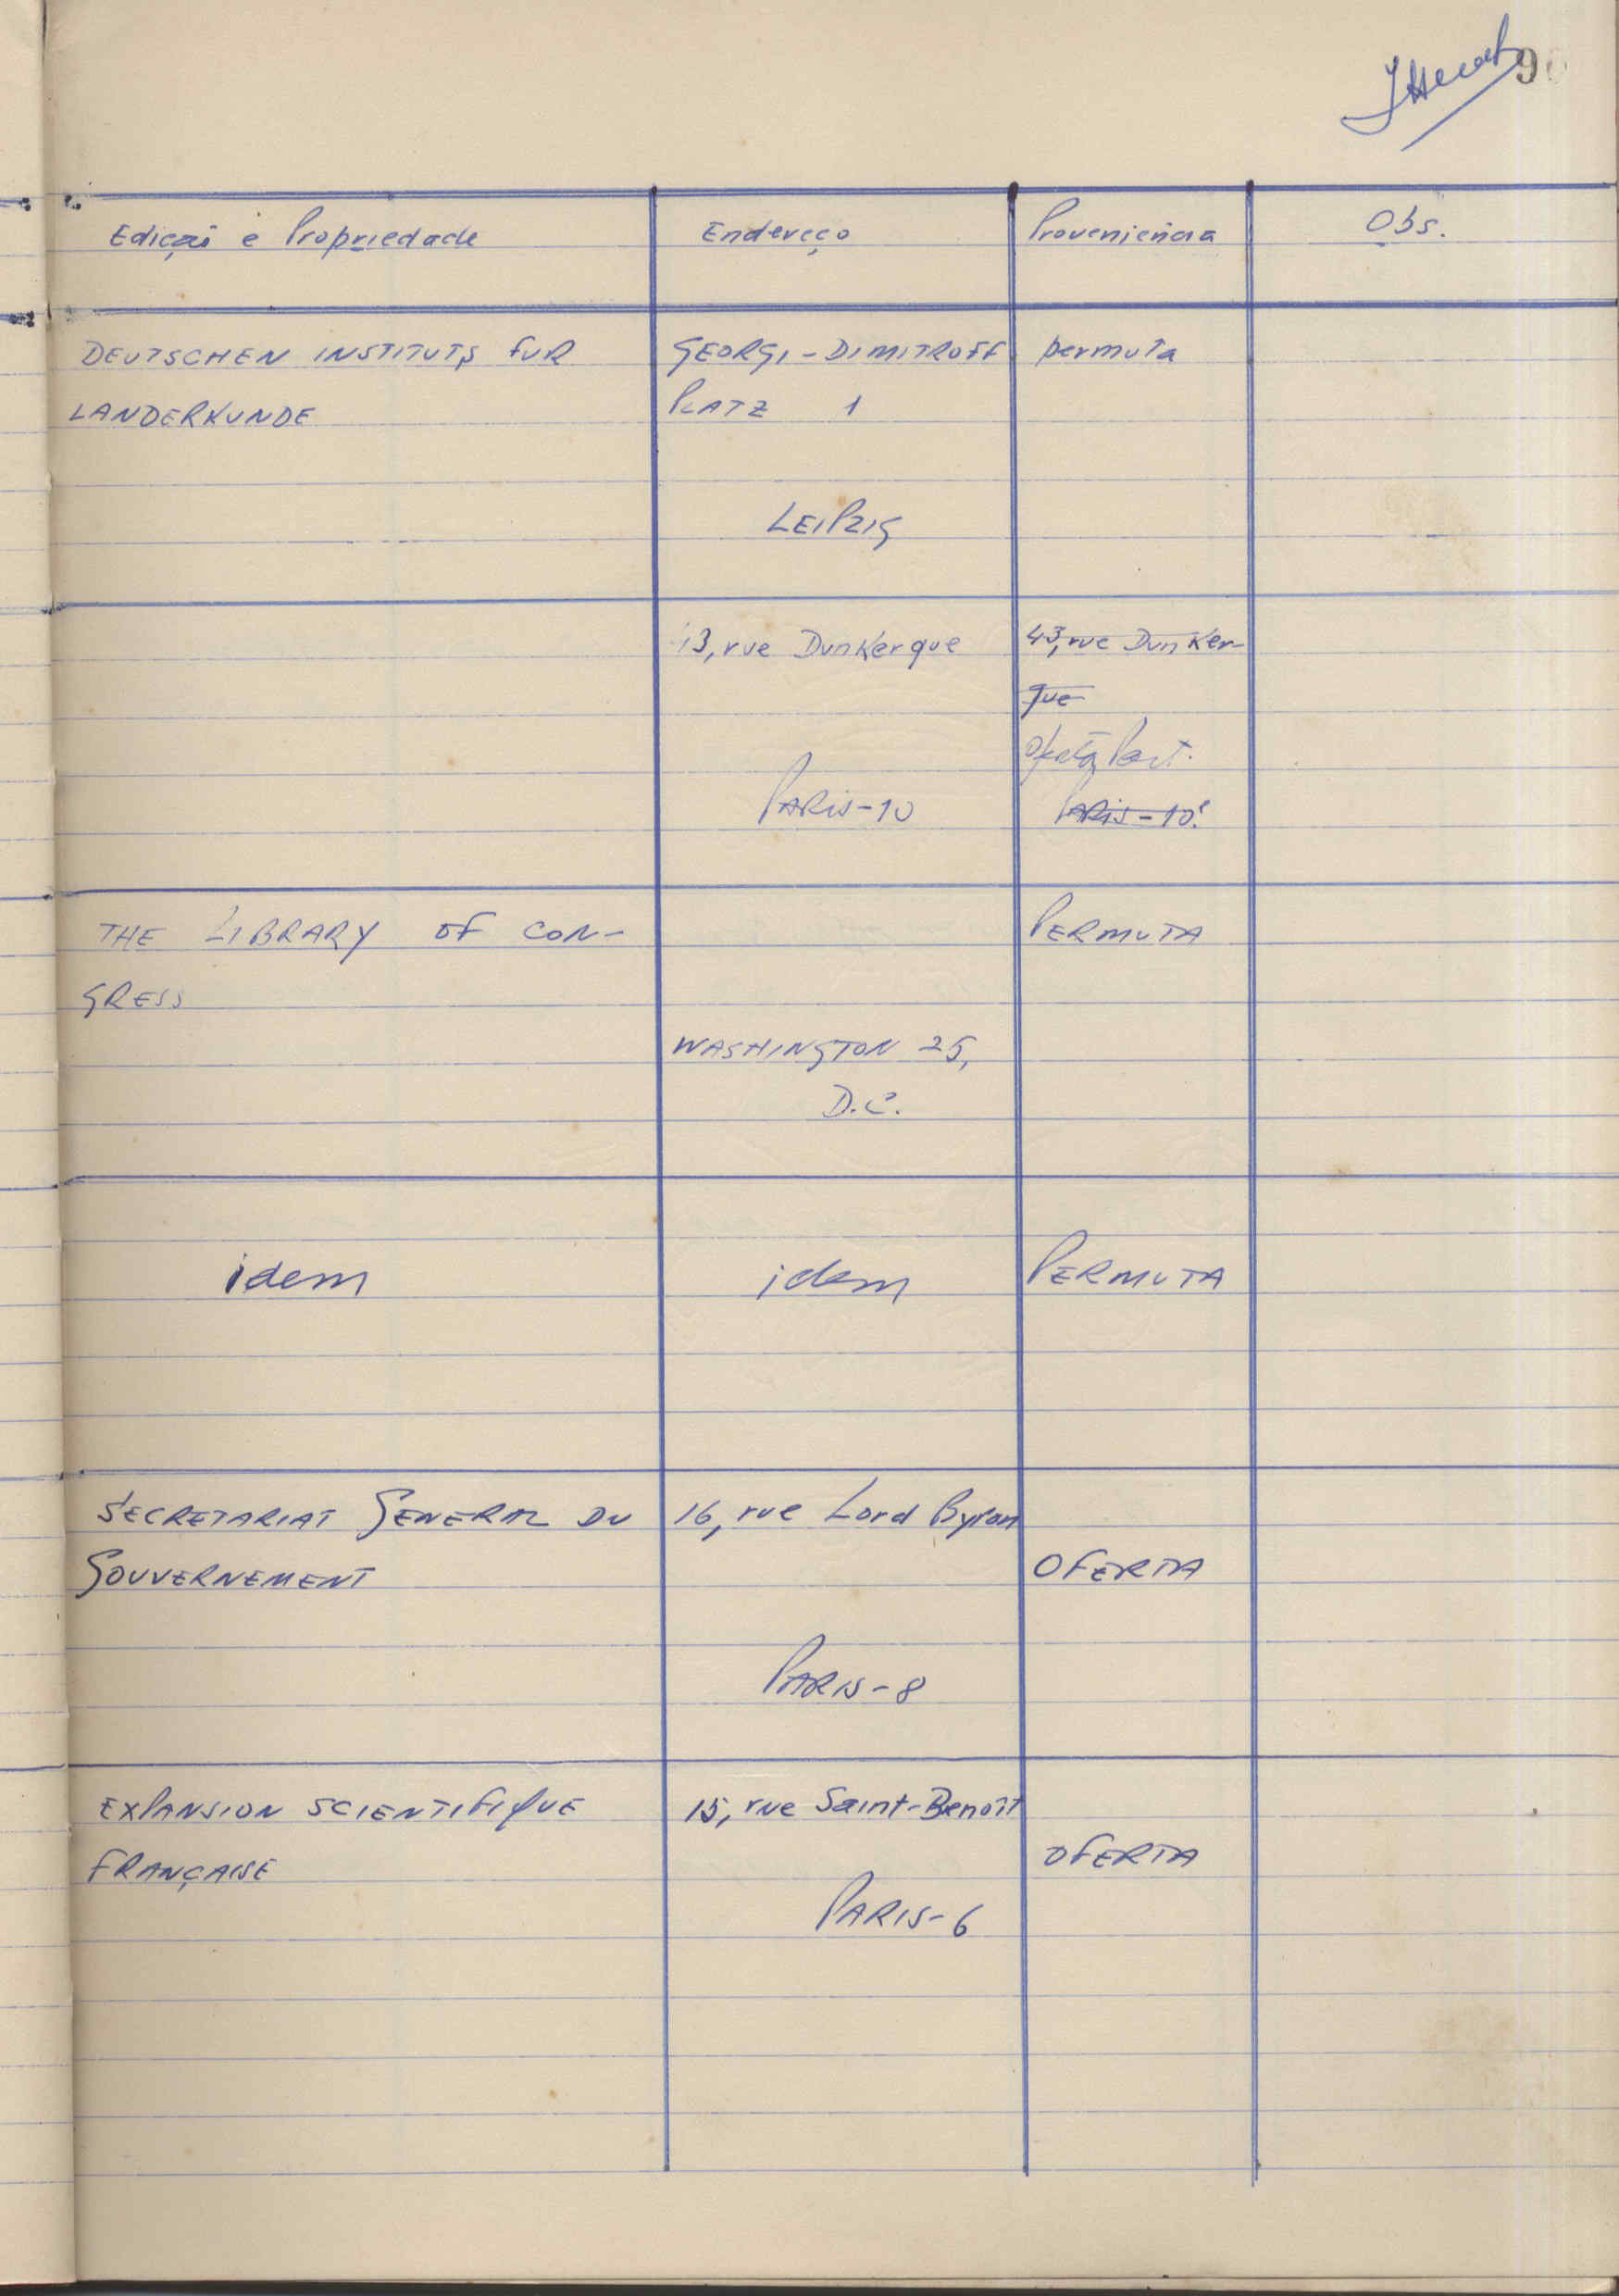 90
Edição e Propriedade Endereço Proveniência Obs.
DEUTSCHEN INSTITUTS FUR GEORGI-DIMITROFF permuta
LANDERKUNDE PLATZ 1
LEIPZIG
13, rue Dunkerque 43, rue Dunker-
que
Oferta Part.
PARIS-10 PARIS-10e
THE LIBRARY OF CON- PERMUTA
GRESS
WASHINGTON 25,
D.C.
idem idem PERMUTA
SECRETARIAT GENERAL DU 16, rue Lord Byron
GOUVERNEMENT OFERTA
PARIS-8
EXPANSION SCIENTIFIQUE 15, rue Saint-Benoît
FRANÇAISE OFERTA
PARIS-6